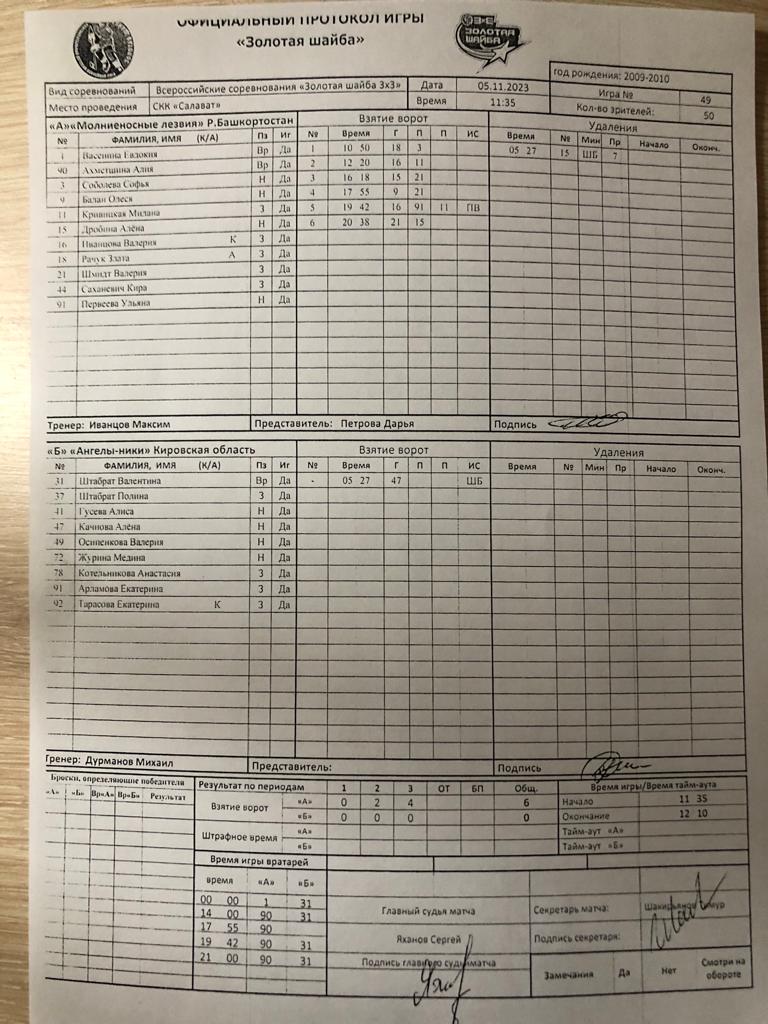 ОФИЦИАЛЬНЫЙ ПРОТОКОЛ ИГРЫ
«Золотая шайба»
ЗОЛОТАЯ ШАЙБА 3x3
Вид соревнований Всероссийские соревнования «Золотая шайба 3х3» Дата 05.11.2023 год рождения: 2009-2010
Место проведения СКК «Салават» Время 11:35 Игра № 49
Кол-во зрителей: 50
«А»«Молниеносные лезвия» Р.Башкортостан Взятие ворот Удаления
№ ФАМИЛИЯ, ИМЯ (К/А) Пз Иг № Время Г П П ИС Время № Мин Пр Начало Оконч.
1 Васенина Евдокия Вр Да 1 10 50 18 3 05 27 15 ШБ 7
90 Ахметшина Алия Вр Да 2 12 20 16 11
3 Соболева Софья Н Да 3 16 18 15 21
9 Балан Олеся Н Да 4 17 55 9 21
11 Кривицкая Милана З Да 5 19 42 16 91 11 ПВ
15 Дробина Алёна Н Да 6 20 38 21 15
16 Иванцова Валерия К З Да
18 Рачук Злата А З Да
21 Шмидт Валерия З Да
44 Саханевич Кира З Да
91 Первеева Ульяна Н Да
Тренер: Иванцов Максим Представитель: Петрова Дарья Подпись
«Б» «Ангелы-ники» Кировская область Взятие ворот Удаления
№ ФАМИЛИЯ, ИМЯ (К/А) Пз Иг № Время Г П П ИС Время № Мин Пр Начало Оконч.
31 Штабрат Валентина Вр Да - 05 27 47 ШБ
37 Штабрат Полина З Да
41 Гусева Алиса Н Да
47 Качнова Алёна Н Да
49 Осипенкова Валерия Н Да
72 Журина Медина Н Да
78 Котельникова Анастасия З Да
91 Арламова Екатерина З Да
92 Тарасова Екатерина К З Да
Тренер: Дурманов Михаил Представитель: Подпись
Броски, определяющие победителя Результат по периодам 1 2 3 ОТ БП Общ. Время игры/Время тайм-аута
«А» «Б» Вр«А» Вр«Б» Результат Взятие ворот «А» 0 2 4 6 Начало 11 35
«Б» 0 0 0 0 Окончание 12 10
Штрафное время «А» Тайм-аут «А»
«Б» Тайм-аут «Б»
Время игры вратарей
время «А» «Б»
00 00 1 31 Главный судья матча Секретарь матча:
14 00 90 31
17 55 90
19 42 90 31 Яханов Сергей Подпись секретаря:
21 00 90 31 Подпись главного судьи матча Замечания Да Нет Смотри на обороте